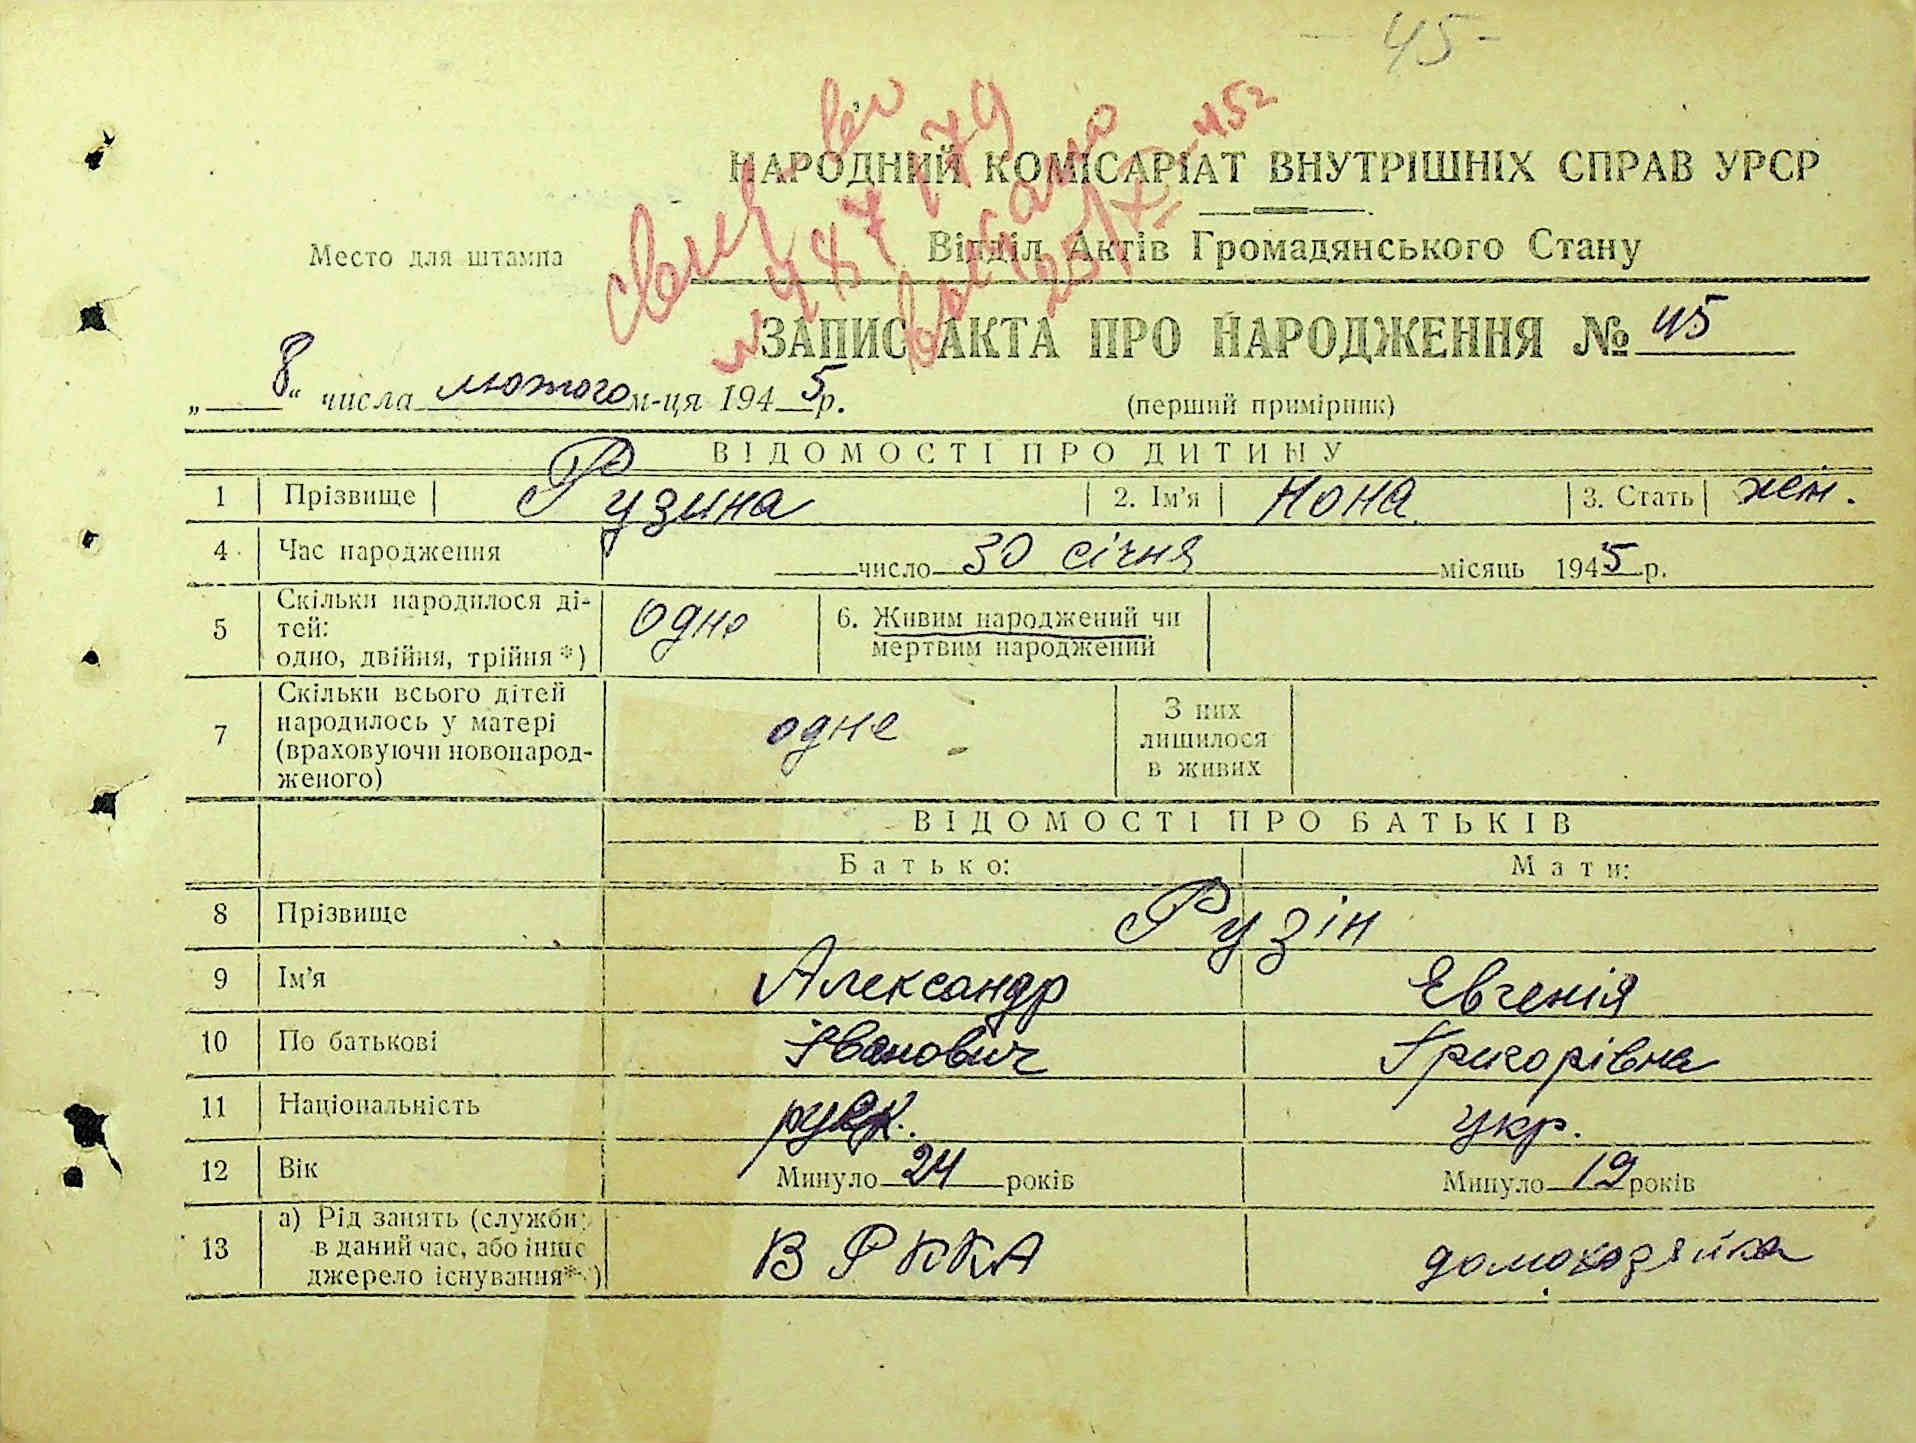 - 45 -
НАРОДНИЙ КОМІСАРІАТ ВНУТРІШНІХ СПРАВ УРСР
Место для штампа
Відділ Актів Громадянського Стану
ЗАПИС АКТА ПРО НАРОДЖЕННЯ № 45
„8“ числа лютого м-ця 1945 р.
(перший примірник)
ВІДОМОСТІ ПРО ДИТИНУ
1 Прізвище Рузина 2. Ім'я Нона 3. Стать жін.
4 Час народження число 30 січня місяць 1945 р.
5 Скільки народилося ді-
тей:
одно, двійня, трійня*) одно
6. Живим народжений чи
мертвим народжений
7 Скільки всього дітей
народилось у матері
(враховуючи новонарод-
женого) одне
З них
лишилося
в живих
ВІДОМОСТІ ПРО БАТЬКІВ
Батько: Мати:
8 Прізвище Рузін
9 Ім'я Александр Евгенія
10 По батькові Іванович Григорівна
11 Національність руск. укр.
12 Вік Минуло 24 років Минуло 19 років
13 а) Рід занять (служби)
в даний час, або інше
джерело існування*) В РККА домохозяйка